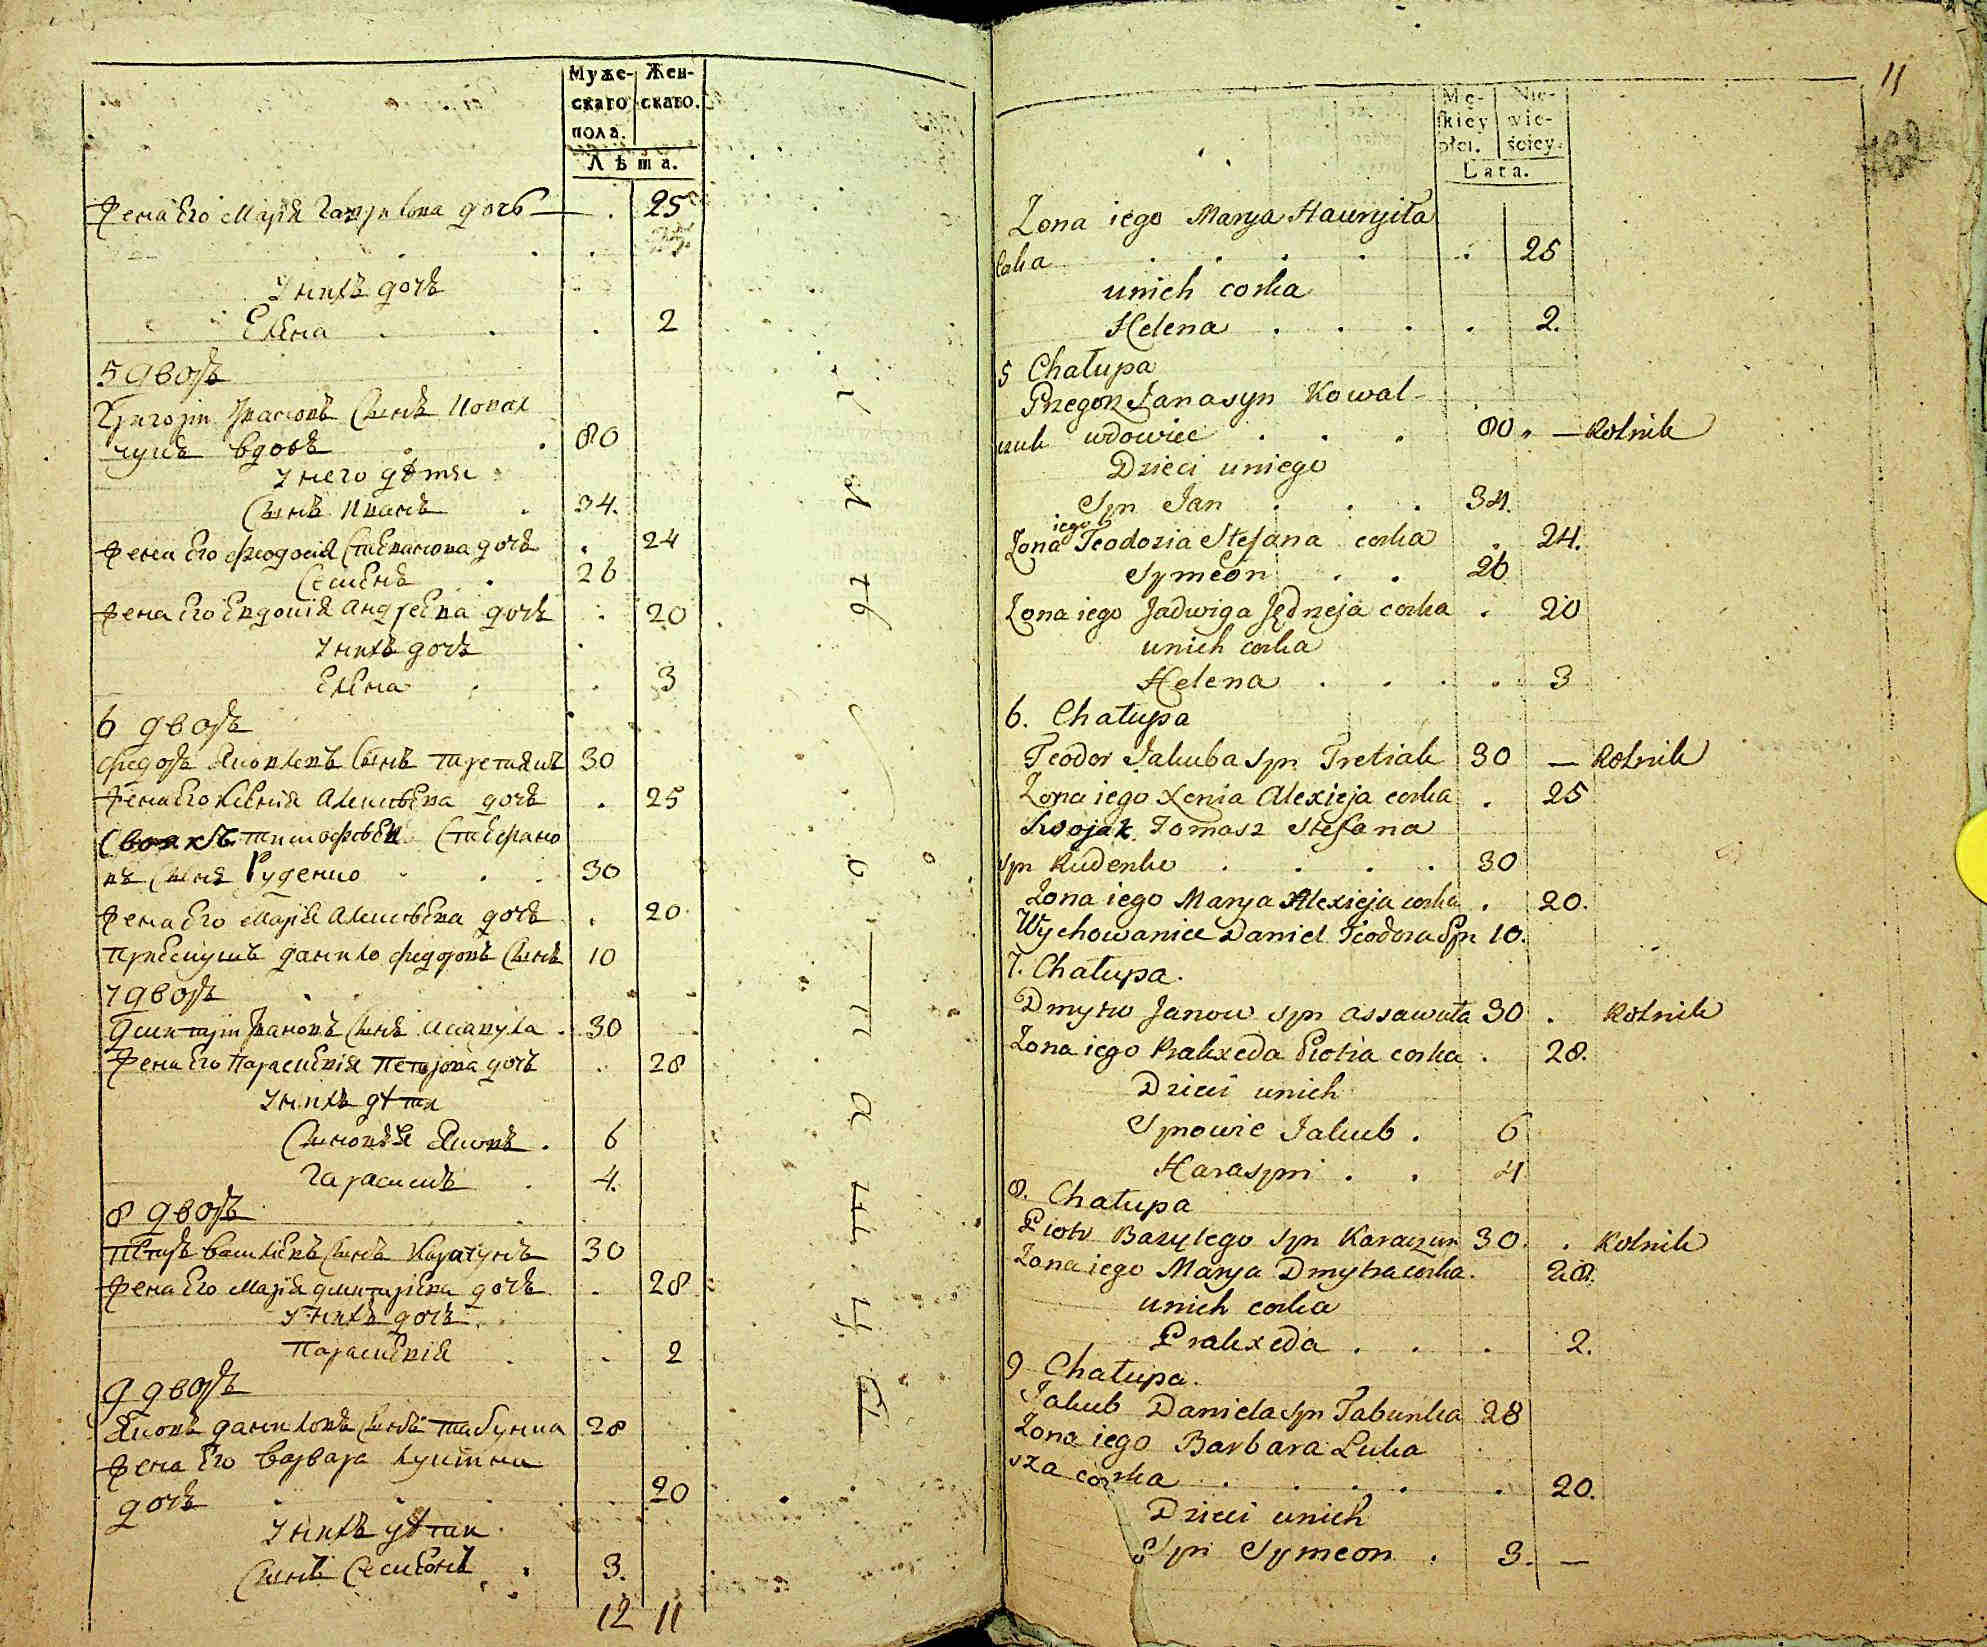 Муже- Жен-
скаго скаго.
пола.
Лѣта.
Жена Его Марія Гаврилова дочь 25
У нихъ дочь
Елена 2
5 дворъ
Григорій Ивановъ Сынъ Ковал
чукъ вдовъ 80
У него дѣти
Сынъ Иванъ 34.
Жена Его Феодосія Стефанова дочь 24
Семенъ 26
Жена Его Евдокія Андреева дочь 20
У нихъ дочь
Елена 3
6 дворъ
Федоръ Яковлевъ Сынъ Третякъ 30
Жена Его Ксенія Алексѣева дочь 25
Своякъ Тимофѣй Стефано
въ Сынъ Руденко 30
Жена Его Марія Алексѣева дочь 20
Пріемышъ Данило Федоровъ Сынъ 10
7 дворъ
Дмитрій Ивановъ Сынъ Асавула 30
Жена Его Параскевія Петрова дочь 28
У нихъ дѣти
Сыновья Яковъ 6
Гарасимъ 4.
8 дворъ
Петръ Василевъ Сынъ Карачунъ 30
Жена Его Марія Дмитріева дочь 28
У нихъ дочь
Параскевія 2
9 дворъ
Яковъ Даниловъ Сынъ Табунка 28
Жена Его Варвара Лукина
дочь 20
У нихъ дѣти
Сынъ Семенъ 3.
12 11
11
Mę- Nie-
skiey wie-
płci. ściey.
Lata.
Zona iego Marya Hawryiła
corka 25
unich corka
Helena 2.
5 Chałupa
Grzegorz Jana syn Kowal-
czuk wdowiec 80. — Rolnik
Dzieci uniego
Syn Jan 34.
Zona iego Teodozia Stefana corka 24.
Symeon 26
Zona iego Jadwiga Jędrzeja corka 20
unich corka
Helena 3
6. Chałupa
Teodor Jakuba syn Tretiak 30 — Rolnik
Zona iego Xenia Alexieja corka 25
Swojak Tomasz Stefana
syn Rudenko 30
Zona iego Marya Alexieja corka 20.
Wychowaniec Daniel Teodora Syn 10.
7. Chałupa.
Dmytro Janow syn Assawuła 30 . Rolnik
Zona iego Praxeda Piotra corka 28.
Dzieci unich
Synowie Jakub 6
Harasym 4
8. Chałupa
Piotr Bazylego syn Karaczun 30 . Rolnik
Zona iego Marya Dmytra corka. 28.
unich corka
Praxeda 2.
9 Chałupa.
Jakub Daniela syn Tabunka 28
Zona iego Barbara Luka
sza corka 20.
Dzieci unich
Syn Symeon 3. —